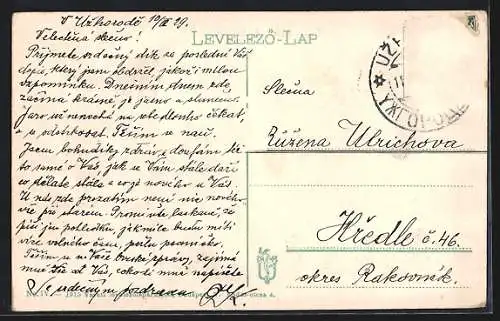 V Užhorodě 10/III 19.
Velectěná slečno!
Přijměte srdečný dík za poslední Váš
dopis, který jsem obdržel jakož i milou
vzpomínku. Dnešním dnem zde
začíná krásně je jasno a slunečno.
Jaro už nenechá na sebe dlouho čekat,
Těším se naň.
Jsem bohudíky zdráv, doufám, též
to samé o Vás, jak se Vám stále daří
co děláte stále a co je nového u Vás.
U nás zde prozatím není nic nového
vše při starém. Promiňte laskavě, že
píši jen pohlednici, jakmile budu míti
více volného času, pošlu psaníčko.
Těším se na Vaše brzké zprávy, zajímá
mne vše od Vás, cokoli mně napíšete
Se srdečným pozdravem
LEVELEZŐ-LAP
Slečna
Růžena Ulrichova
Hředle č. 46.
okres Rakovník.